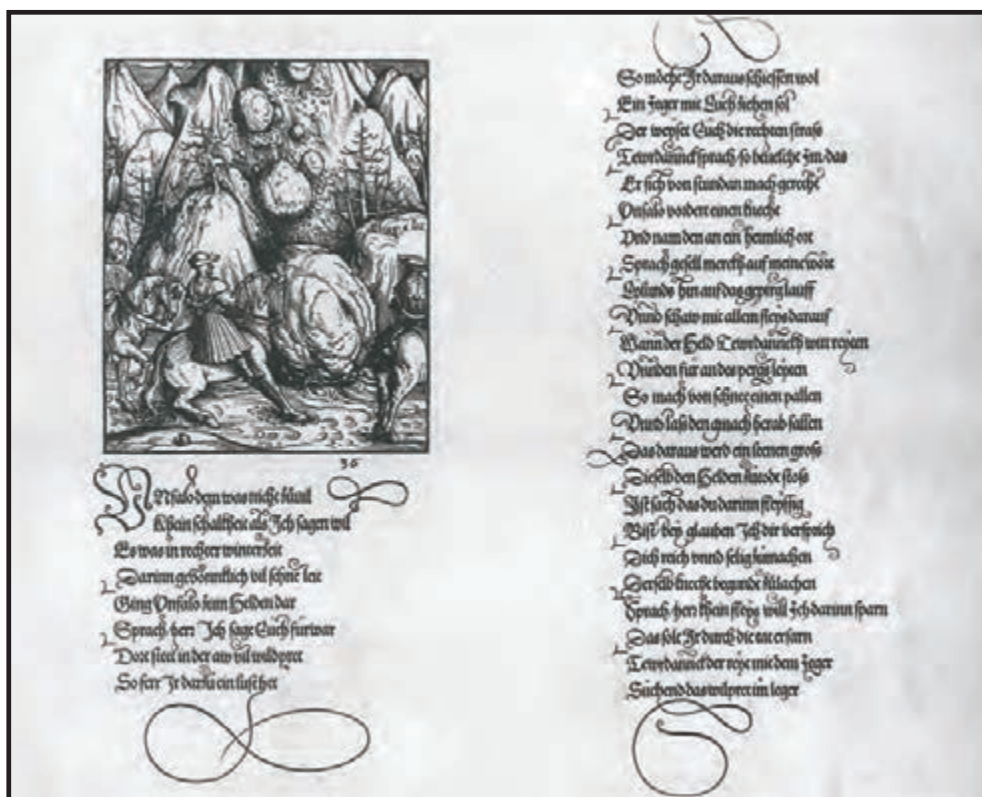 36
Unfalo dem was nicht zůuil
Khein schalkheit als Ich sagen wil
Es was in rechter winterzeit
Darinn gewonnklich vil schne leit
Ging Unfalo zum Helden dar
Sprach herr Ich sage Euch furwar
Dort steet in der aw vil wildpret
So ferr Ir darzu ein lust het
So möcht Ir daraus schiessen wol
Ein Jager mit Euch ziehen sol
Der weyset Euch die rechten strass
Tewrdannck sprach so beuelht Im das
Er sich von stundan mach gerecht
Unfalo vordert einen knecht
Und nam den an ein heimlich ort
Sprach gesell merckh auf meine wort
hin auf das gepirg lauff
Unnd schaw mit allem fleys darauf
Wann der Held Tewrdannckh wirt reyten
Unnden für an des pergs leyten
So mach von schnee einen pallen
Unnd lass den gmach herab fallen
Das daraus werd ein leenen gross
Dieselb den Helden zutode stoss
Ist sach das du darinn fleyssig
Bist bey glauben Ich dir versprich
Dich reich unnd selig zumachen
Derselb knecht begunde zulachen
Sprach herr khein fleyss will Ich darinn sparn
Das solt Ir durch die tat erfarn
Tewrdannck der reyt mit dem Jager
Suchend das wilpret im leger